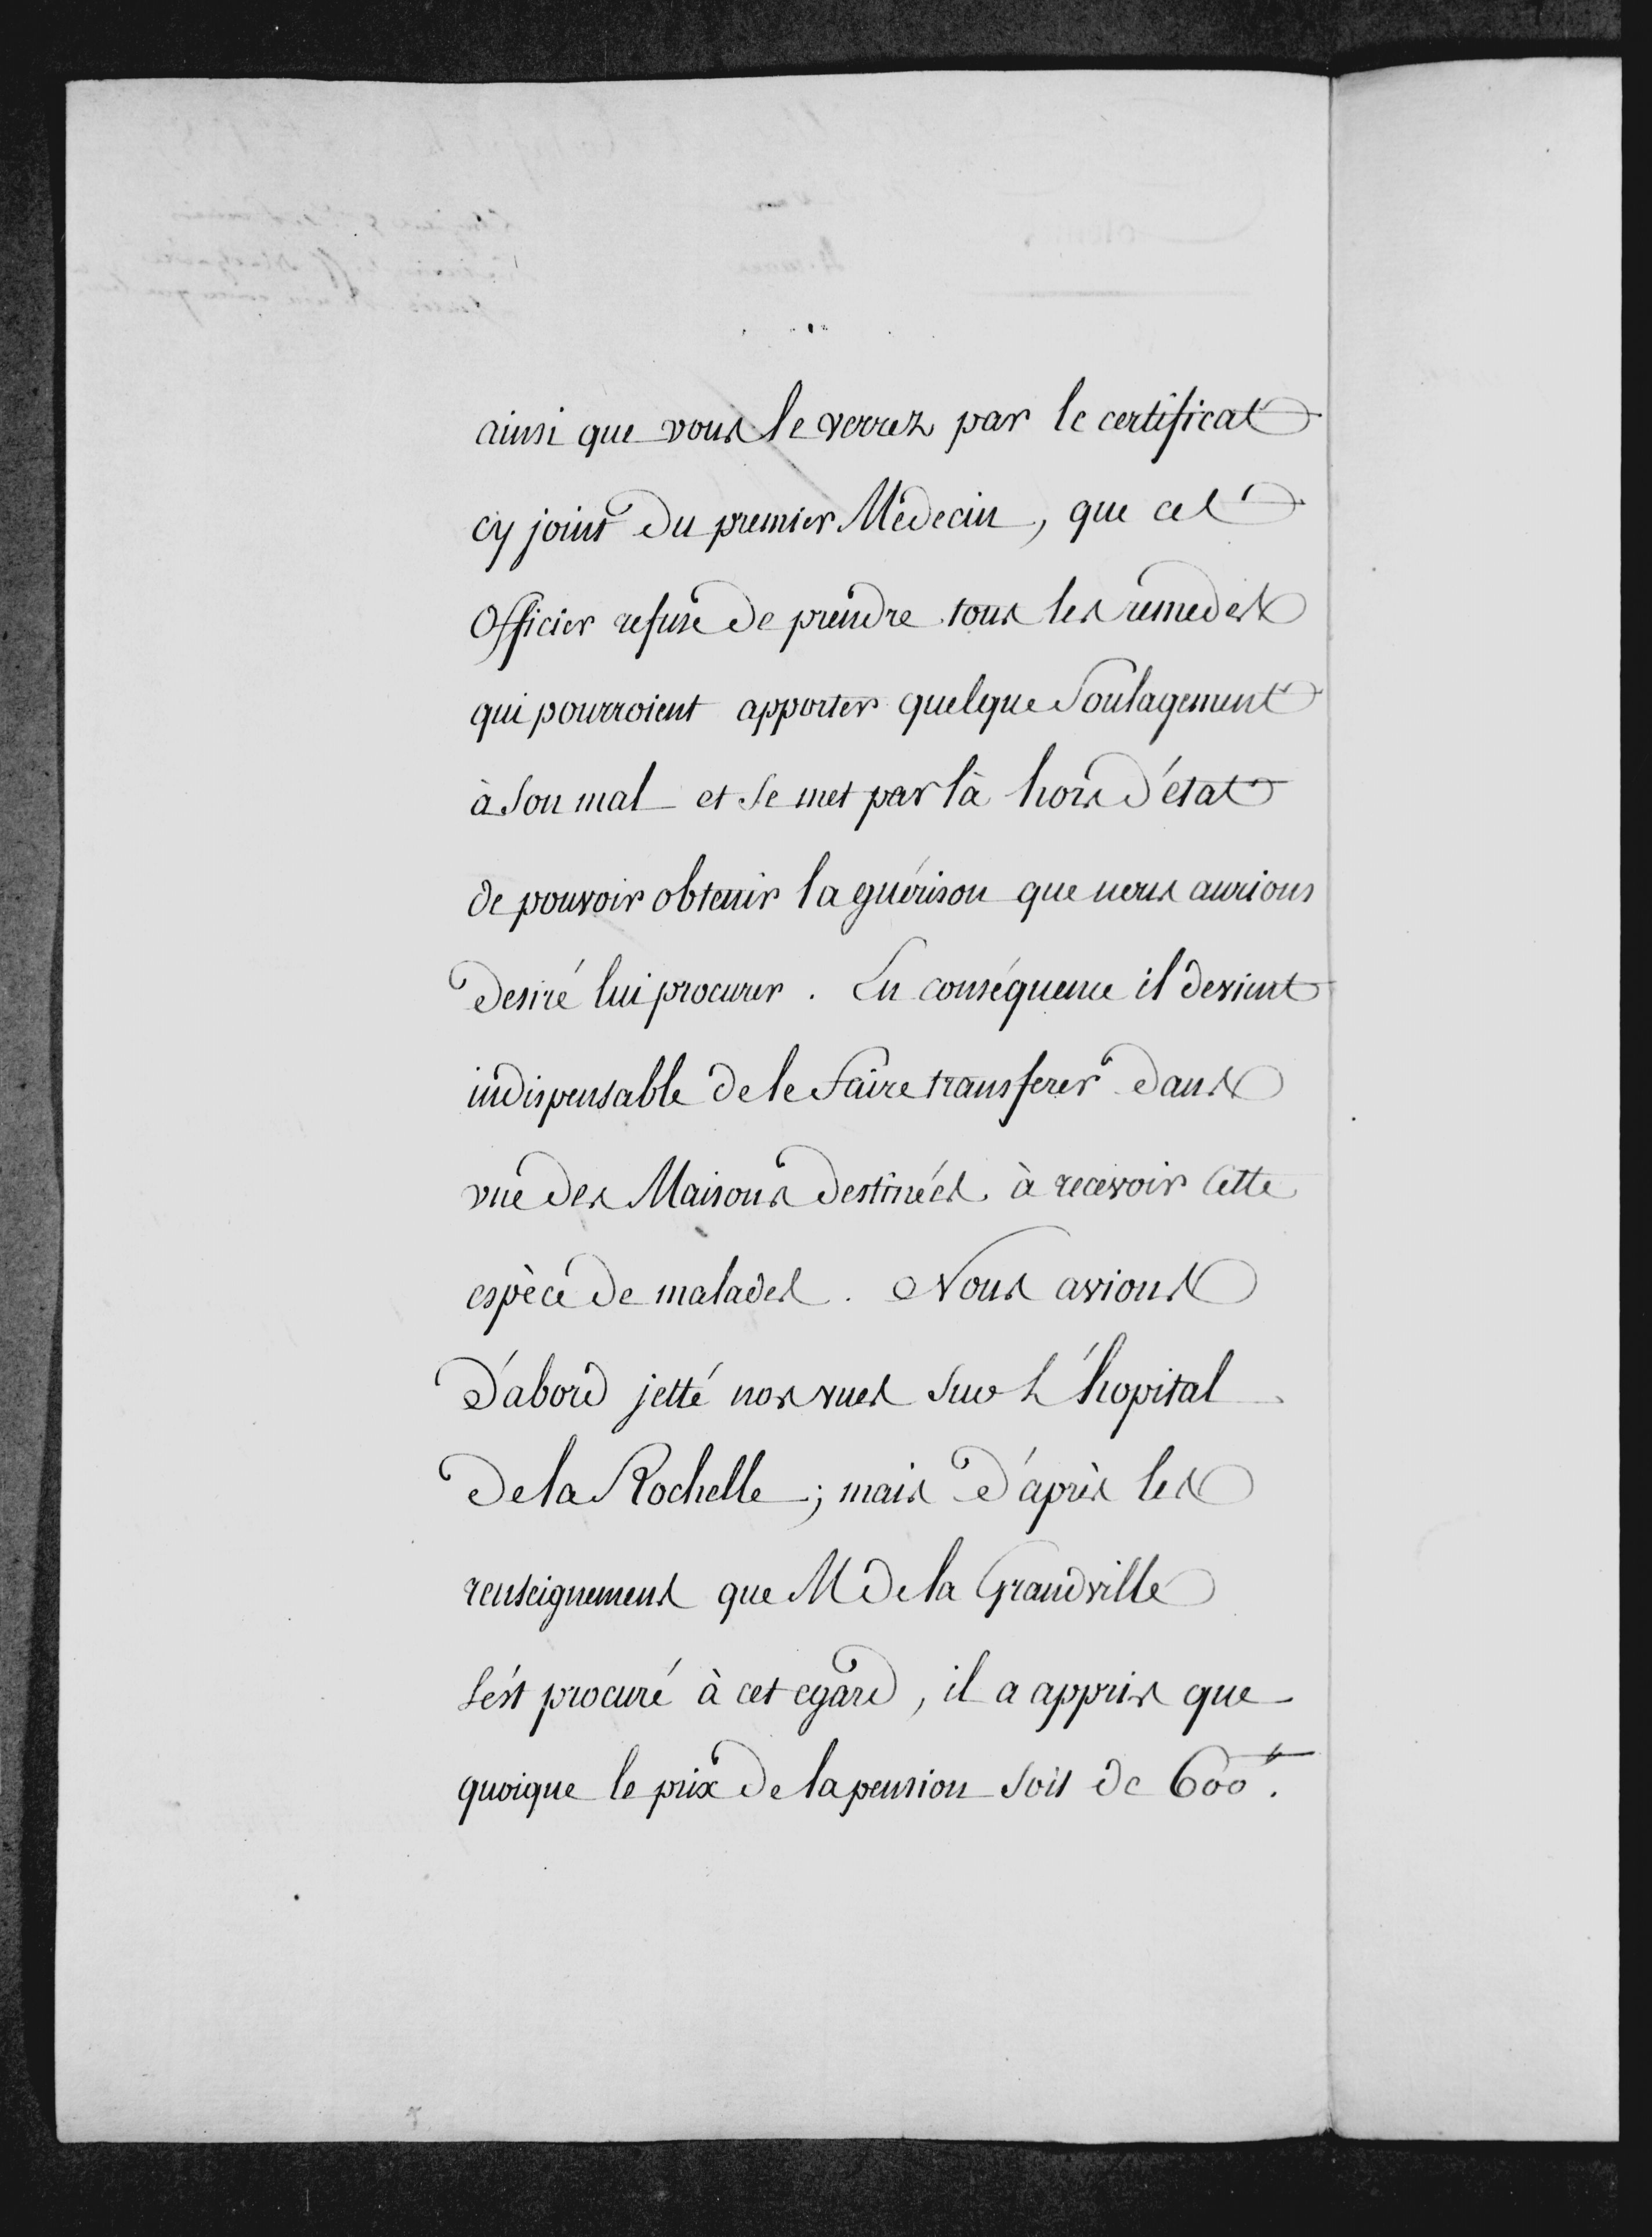 ainsi que vous le verrez par le certificat
cy joint du premier Médecin, que cet
Officier refuse de prendre tous les remedes
qui pourroient apporter quelque Soulagement
à Son mal et Se met par là hors d'état
de pouvoir obtenir la guérison que nous aurions
desiré lui procurer. En conséquence il devient
indispensable de le faire transferer dans
une des Maisons destinées à recevoir cette
espèce de malades. Nous avions
d'abord jetté nos vues Sur L'hopital
de la Rochelle; mais d'après les
renseignemens que M de la Grandville
S'est procuré à cet egard, il a appris que
quoique le prix de la pension Soit de 600 ₶.